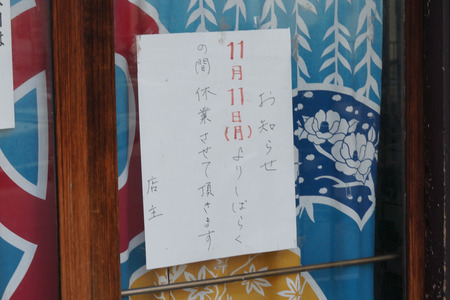 お知らせ
11月11日(月)よりしばらく
の間 休業させて頂きます
店主